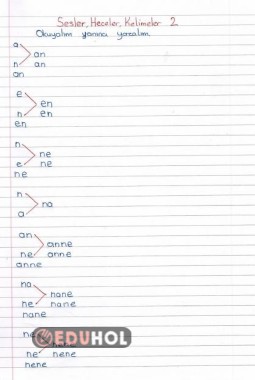 Sesler, Heceler, Kelimeler 2
Okuyalım yanına yazalım.
a
an
n an
an
e
en
n en
en
n
ne
e ne
ne
n
na
a
an
anne
ne anne
anne
na
nane
ne nane
nane
EDUHOL
ne
ne nene
nene